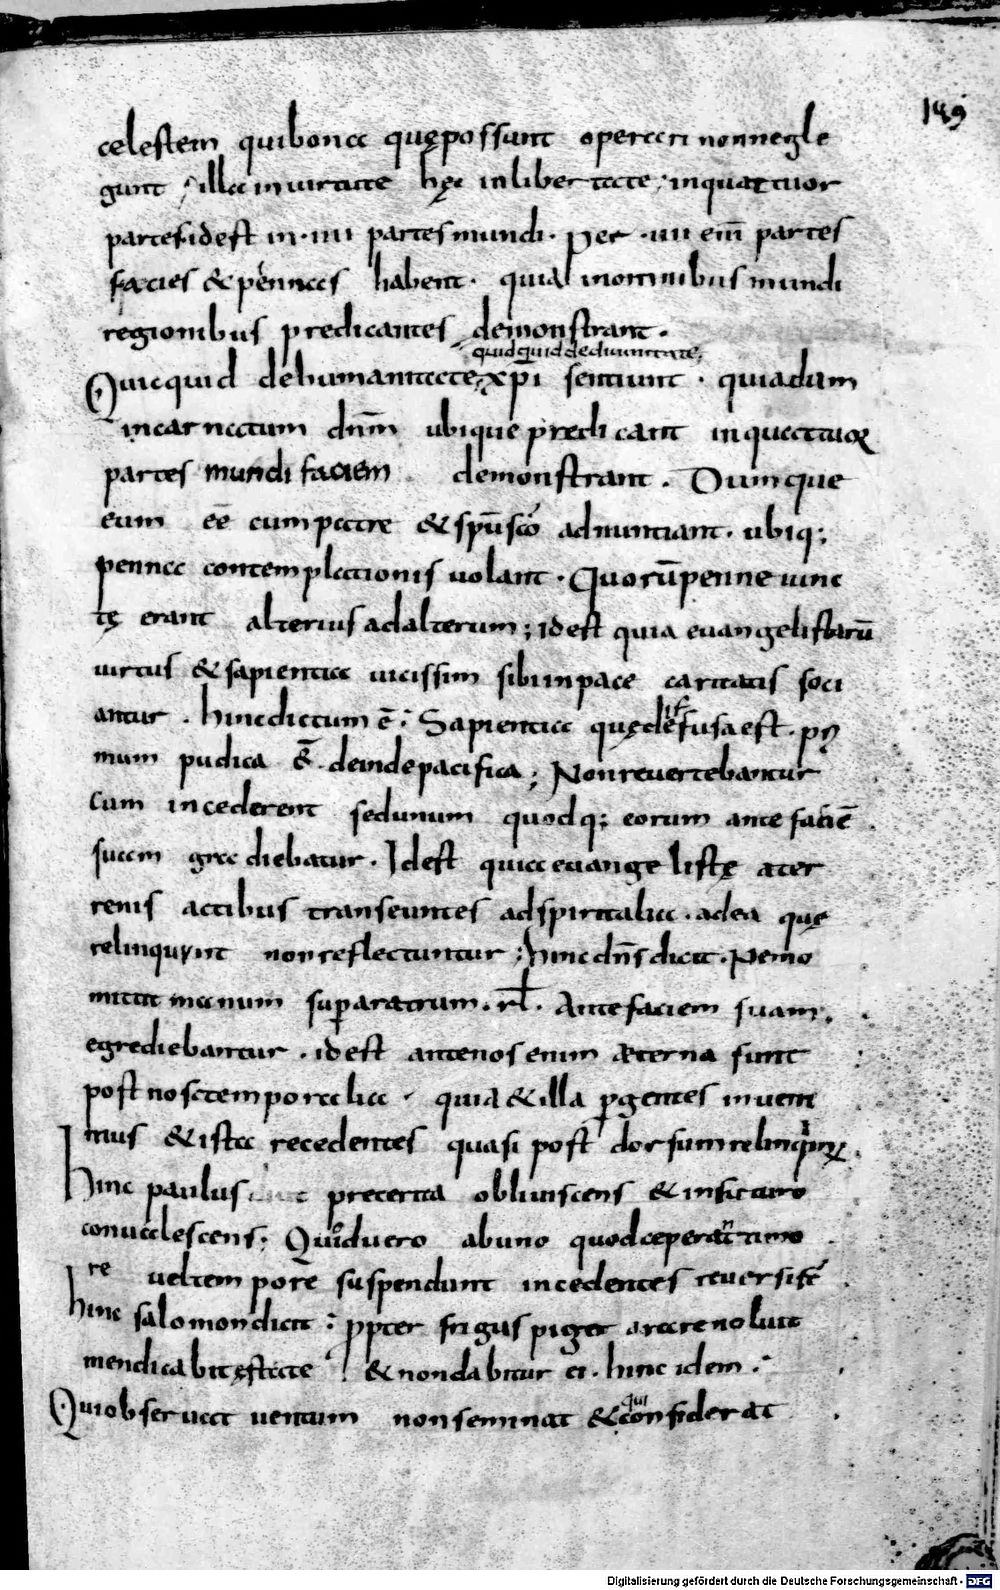 149
celestem qui bona quę possunt operari non negle
gunt ; illa in uirtute hęc in libertate ; in quattuor
partes idest in · iiii partes mundi · Per · iiii eni͞ partes
facies & pennas habent · quia in omnibus mundi
regionibus predicantes demonstrant ·
quidquid de diuinitate ;
Quicquid de humanitate xp̅i sentiunt · quia dum
incarnatum dn̅m ubique predicant in quattuor
partes mundi faciem demonstrant . Dumque
eum ee̅ cum patre & spu̅ sc̅o adnuntiant · ubiq ;
penna contemplationis uolant · Quoru̅ penne iunc
tę erant alterius ad alterum ; idest quia euangelistaru̅
uirtus & sapientia uicissim sibi in pace caritatis soci
antur . hinc dictum e̅ : Sapientia quę desursum
fusa est · pri
mum pudica e̅ · deinde pacifica ; Non reuertebantur
cum incederent sed unum quodq ; eorum ante facie̅
suam gradiebatur . Idest quia euangelistę a ter
renis actibus transeuntes ad spiritalia · ad ea quę
relinquunt non reflectuntur ; hinc dn̅s dicit · Nemo
mittit manum sup aratrum · rl̅ · Ante faciem suam ;
egrediebantur · idest ante nos enim æterna sunt
post nos temporalia · quia & illa pgentes inueni
mus & ista recedentes quasi post dorsum relinquimus
hinc paulus preterita obliuiscens & in futuro
conualescens ; Quid uero ab uno quod ceperant amo
re uel tempore suspendunt incedentes reuersi st̅
hinc salomon dicit : ppter frigus piger arare noluit
mendicabit ęstate & non dabitur ei · hinc idem ·
Qui obseruat uentum non seminat & qui considerat
Digitalisierung gefördert durch die Deutsche Forschungsgemeinschaft - DFG